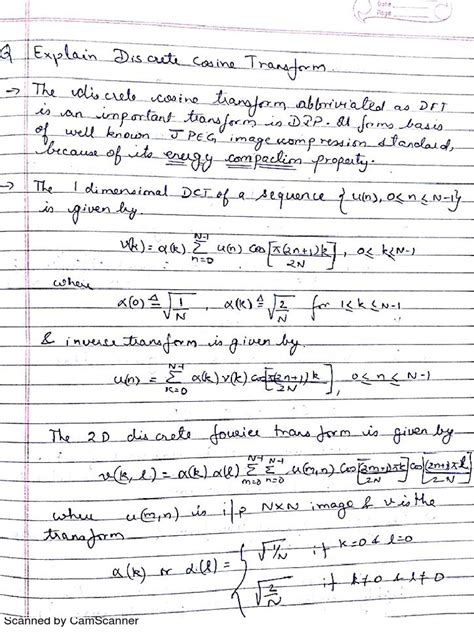 Date
Page
Q Explain Discrete Cosine Transform.
→ The discrete cosine transform abbriviated as DFT
is an important transform is DSP. It forms basis
of well known JPEG image compression standard,
because of its energy compaction property.
→ The 1 dimensional DCT of a sequence {u(n), 0≤n≤N-1}
is given by.
v(k) = α(k) Σ_{n=0}^{N-1} u(n) cos[π(2n+1)k / 2N], 0≤k≤N-1
where
α(0) ≜ √(1/N), α(k) ≜ √(2/N) for 1≤k≤N-1
& inverse transform is given by.
u(n) = Σ_{k=0}^{N-1} α(k) v(k) cos[π(2n+1)k / 2N], 0≤n≤N-1
The 2D discrete fourier transform is given by
v(k, l) = α(k) α(l) Σ_{m=0}^{N-1} Σ_{n=0}^{N-1} u(m,n) cos[(2m+1)πk / 2N] cos[(2n+1)πl / 2N]
where u(m,n) is i/p N×N image & v is the
transform
α(k) or α(l) = { √(1/N) if k=0 & l=0
√(2/N) if k≠0 & l≠0
Scanned by CamScanner